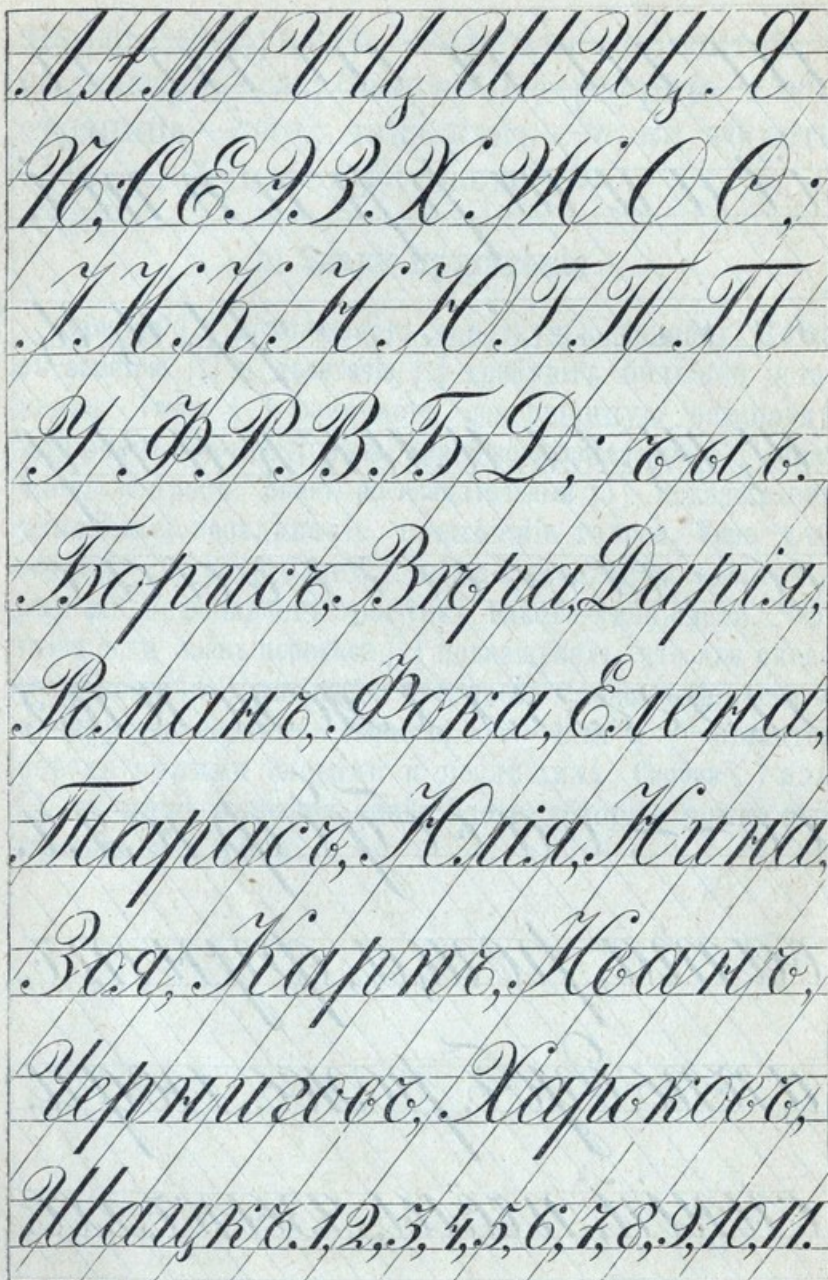 Л А М Ч Ц Ш Щ. Я
Ѣ; С Е. Э З. Х. Ж О Ѳ,;
І. И. К. Н. Ю. Г. П. Т
У. Ф. Р. В. Б Д; ъ ы ь.
Борисъ, Вѣра, Дарія,
Романъ, Фока, Елена,
Тарасъ, Юлія, Нина,
Зоя, Карпъ, Иванъ,
Черниговъ, Харьковъ,
Шацкъ. 1, 2, 3, 4, 5, 6, 7, 8, 9, 10, 11.